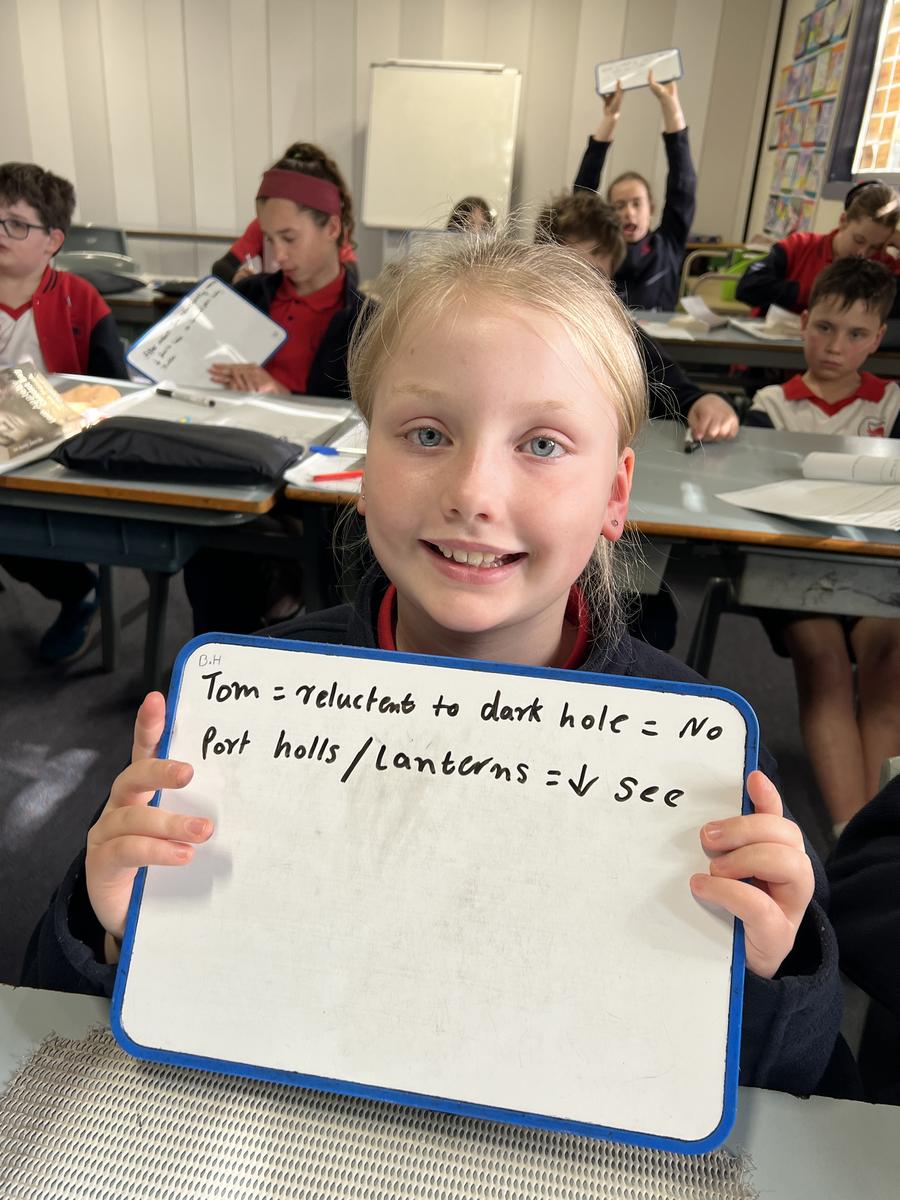 B.H
Tom = reluctent to dark hole = No
Port holls / Lanterns = ↓ see